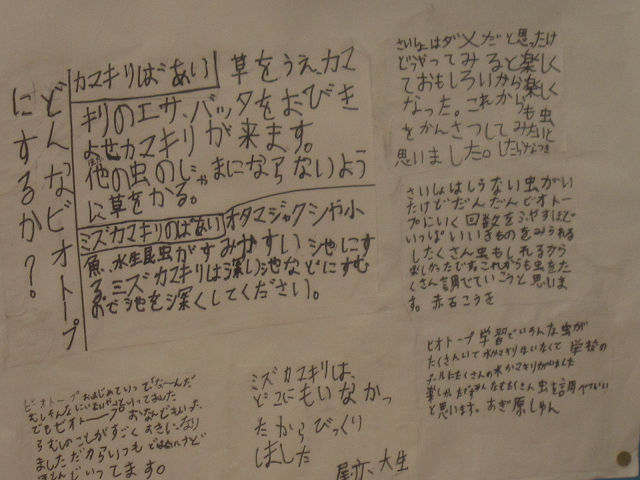 どんなビオトープ
にするか？
カマキリばあい
草をうえ、カマ
キリのエサ、バッタをおびき
よせカマキリが来ます。
他の虫のじゃまにならないよう
に草をかる。
ミズカマキリのばあい
オタマジャクシや小
魚、水生昆虫がすみがすい 池にす
る ミズカマキリは深い池などにすむ
ので池を深くしてください。
さいしょはダメだと思ったけ
どやってみると楽しく
ておもしろいから楽しく
なった。これからも虫
をかんさつしてみたいと
思いました。
さいしょはしらない虫がい
たけどだんだんビオトー
プにいく回数をふやすほどで
いっぱいいきものをみられる
したくさん虫もしれるから
楽しかったです。これからも虫をた
くさん調べていこうと思いま
す。
ビオトープ学習でいろんな虫が
たくさんいて水カマキリはいなくて 学校の
プールにたくさんの水カマキリがいました
たくさん虫を調べていい
と思います。おぎ原しゅん
ミズカマキリは、
どこにもいなかっ
たからびっくり
しました
大生
ビオトープ
でもビオトープ
ろむしのことがすごくすきになり
ましただからいつも
いってます。